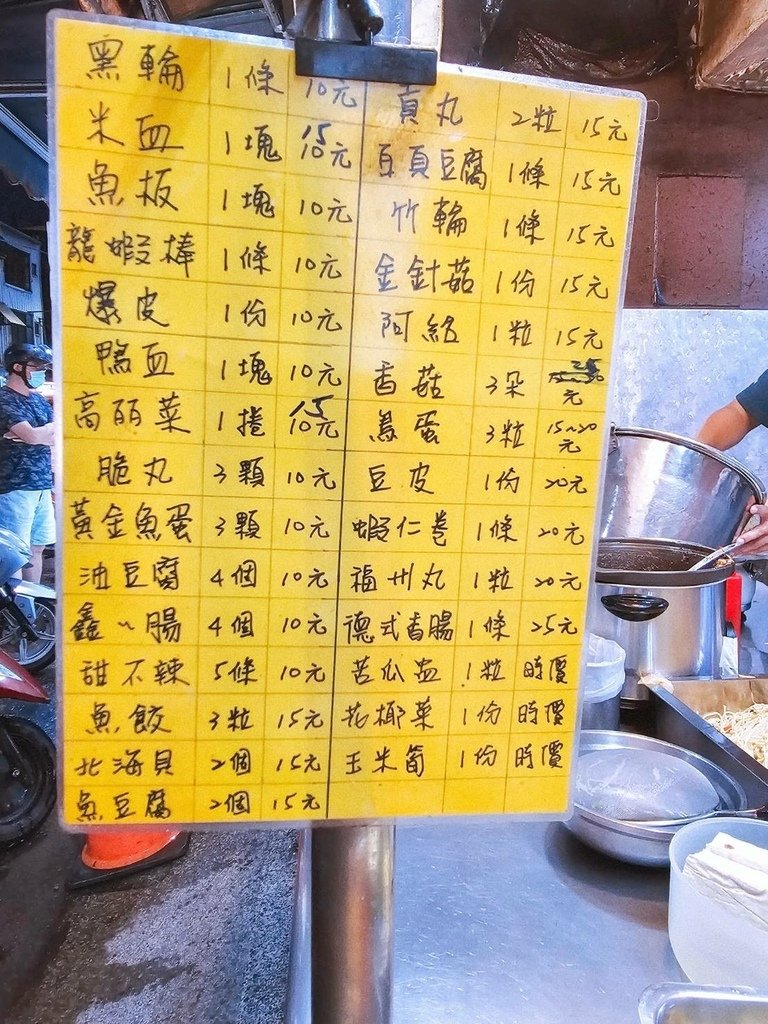 黑輪 1條 10元
米血 1塊 15元
魚板 1塊 10元
龍蝦棒 1條 10元
爆皮 1份 10元
鴨血 1塊 10元
高麗菜 1捲 15元
脆丸 3顆 10元
黃金魚蛋 3顆 10元
油豆腐 4個 10元
鑫~腸 4個 10元
甜不辣 5條 10元
魚餃 3粒 15元
北海貝 2個 15元
魚豆腐 2個 15元
貢丸 2粒 15元
百頁豆腐 1條 15元
竹輪 1條 15元
金針菇 1份 15元
阿給 1粒 15元
香菇 3朵 25元
鳥蛋 3粒 15~20元
豆皮 1份 20元
蝦仁卷 1條 20元
福州丸 1粒 20元
德式香腸 1條 25元
苦瓜盅 1粒 時價
花椰菜 1份 時價
玉米筍 1份 時價